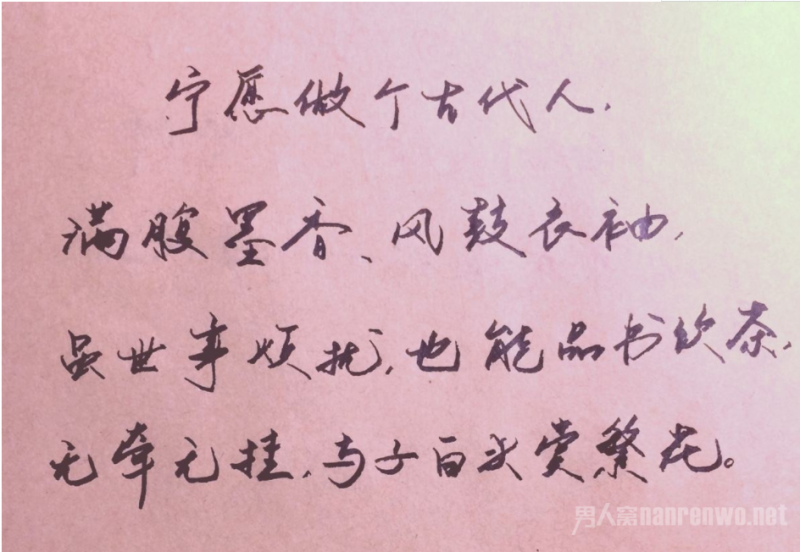 宁愿做个古代人，
满腹墨香、风鼓衣袖，
虽世事烦扰，也能品书饮茶，
无牵无挂，与子白头赏繁花。
男人窝nanrenwo.net